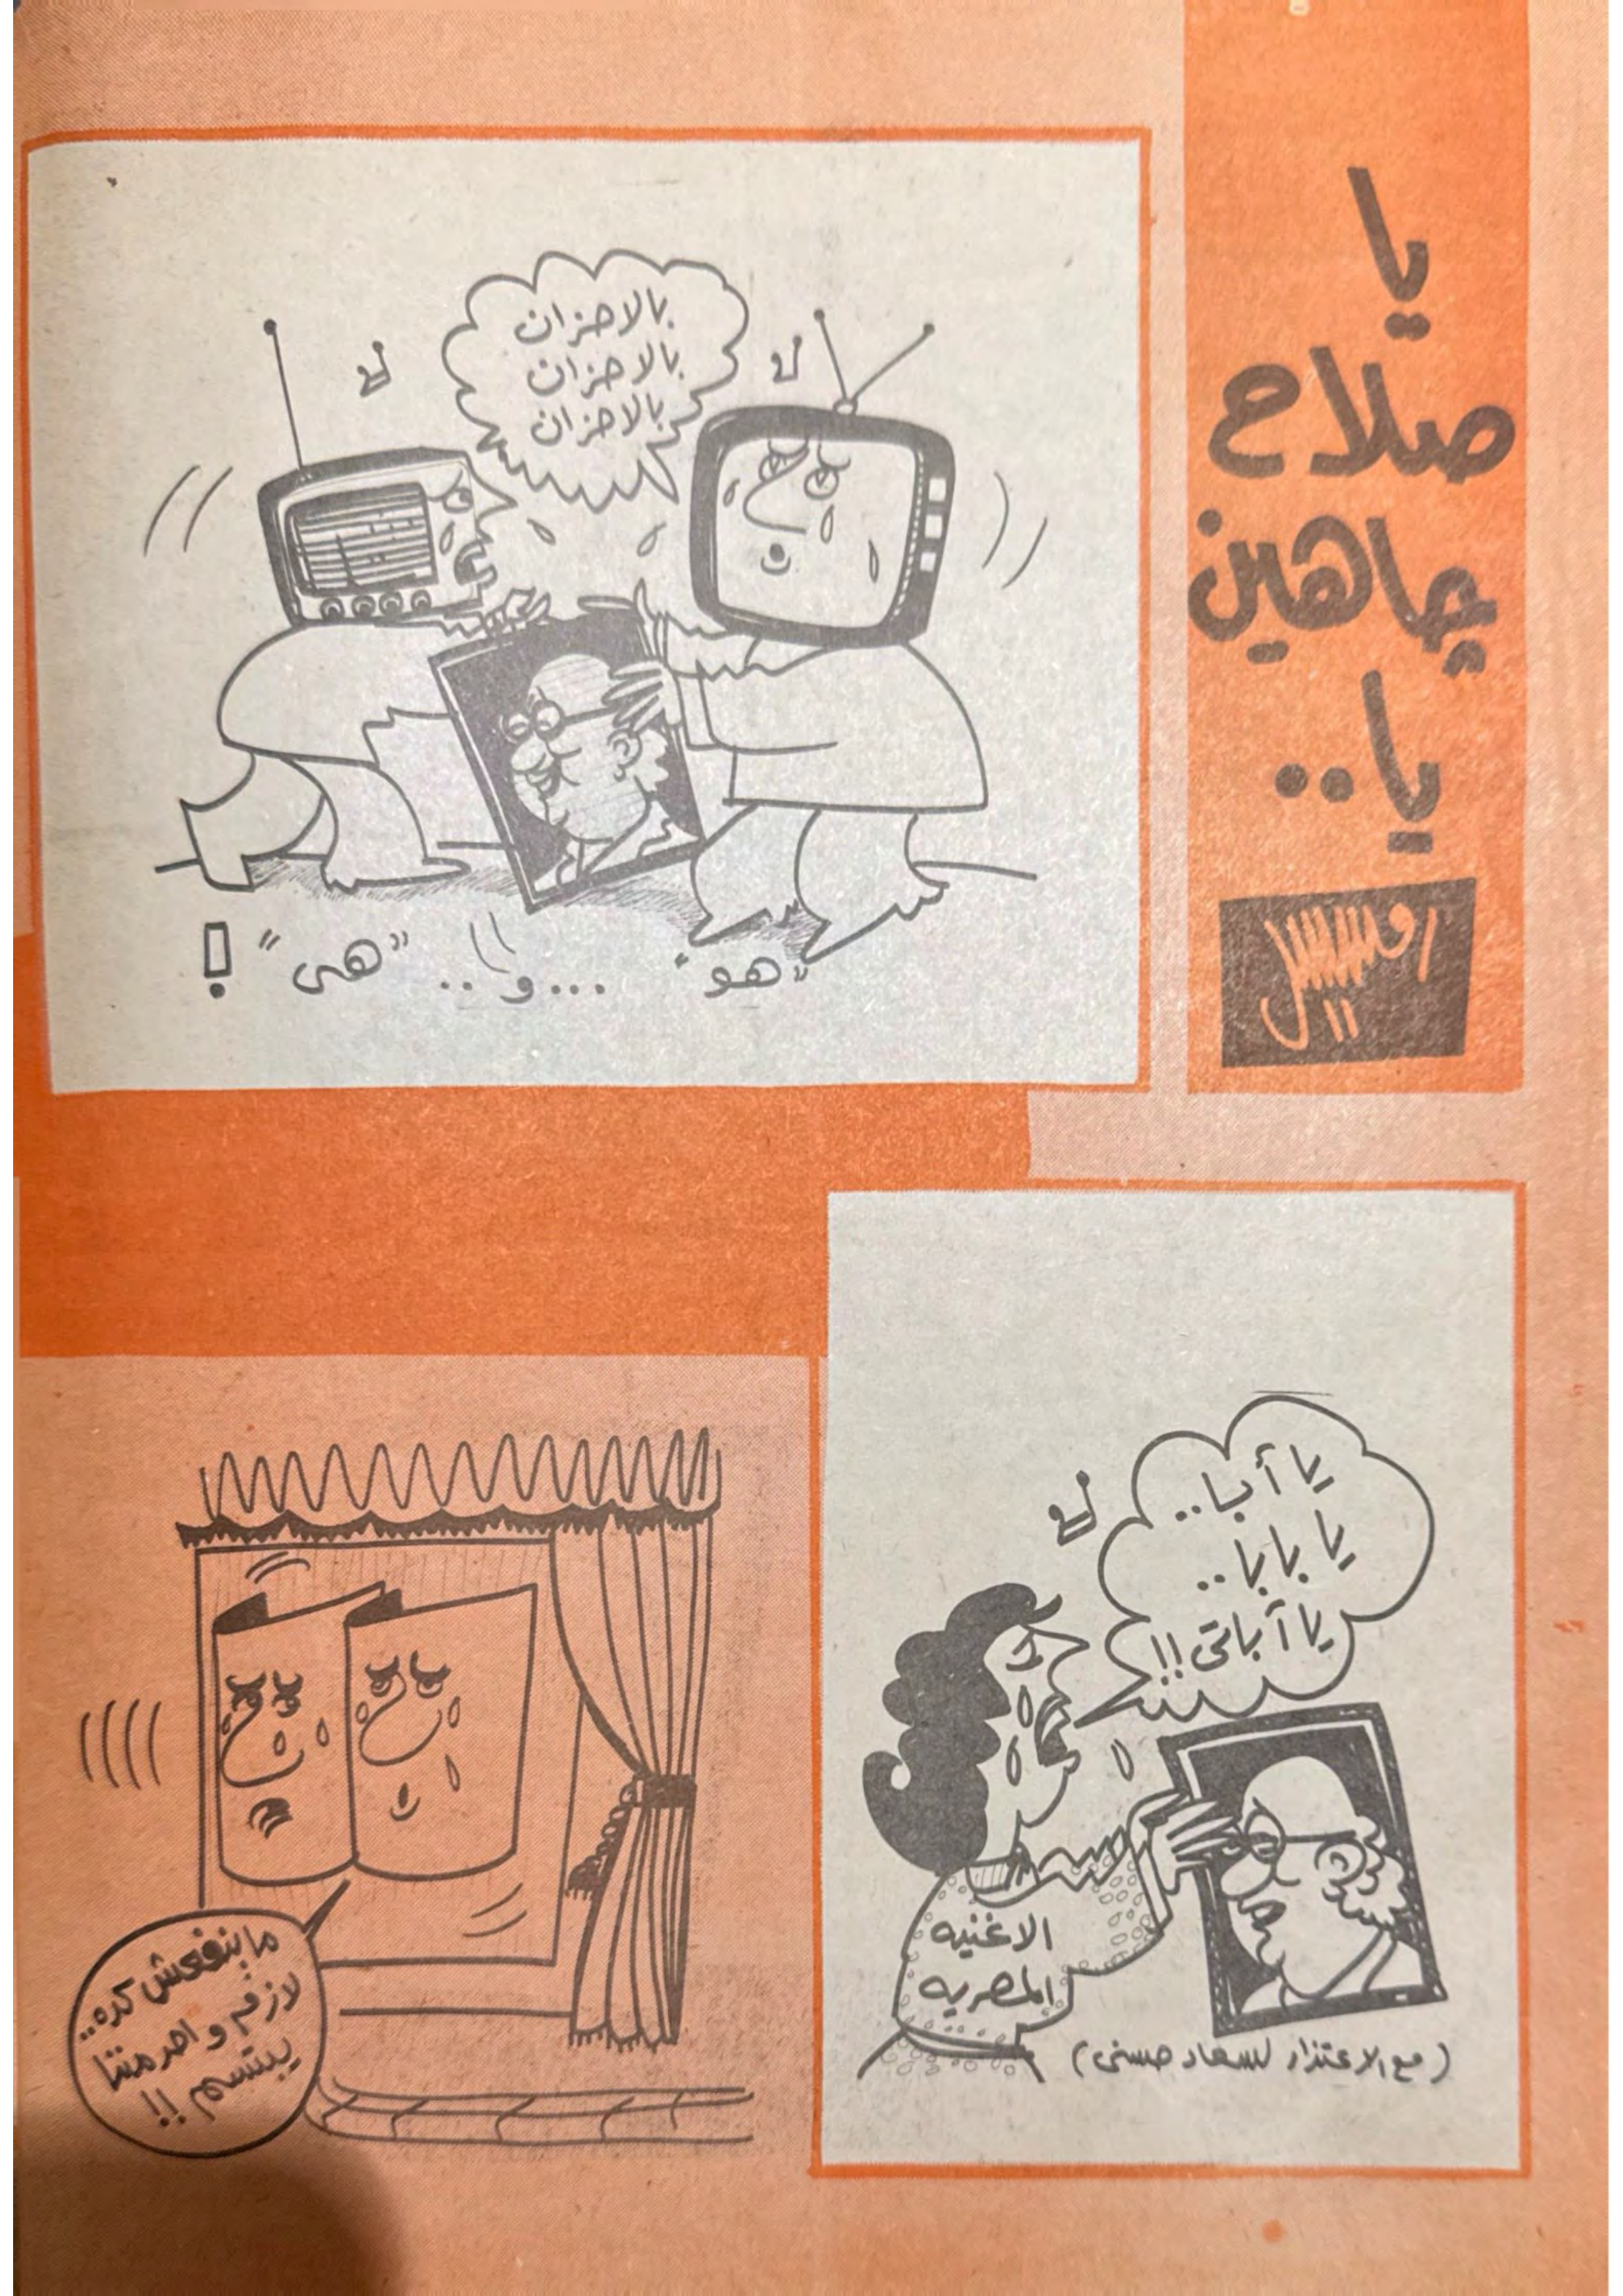 يا
صلاح
چاهين
يا..
بالاحزان
بالاحزان
بالاحزان
"هو" ...و.. "هى" !
يا أبا..
يا بابا..
يا آباتى!!
الاغنيه
المصريه
(مع الاعتذار لسعاد حسنى)
مابنفعش كده..
لازم واحد مننا
يبتسم !!